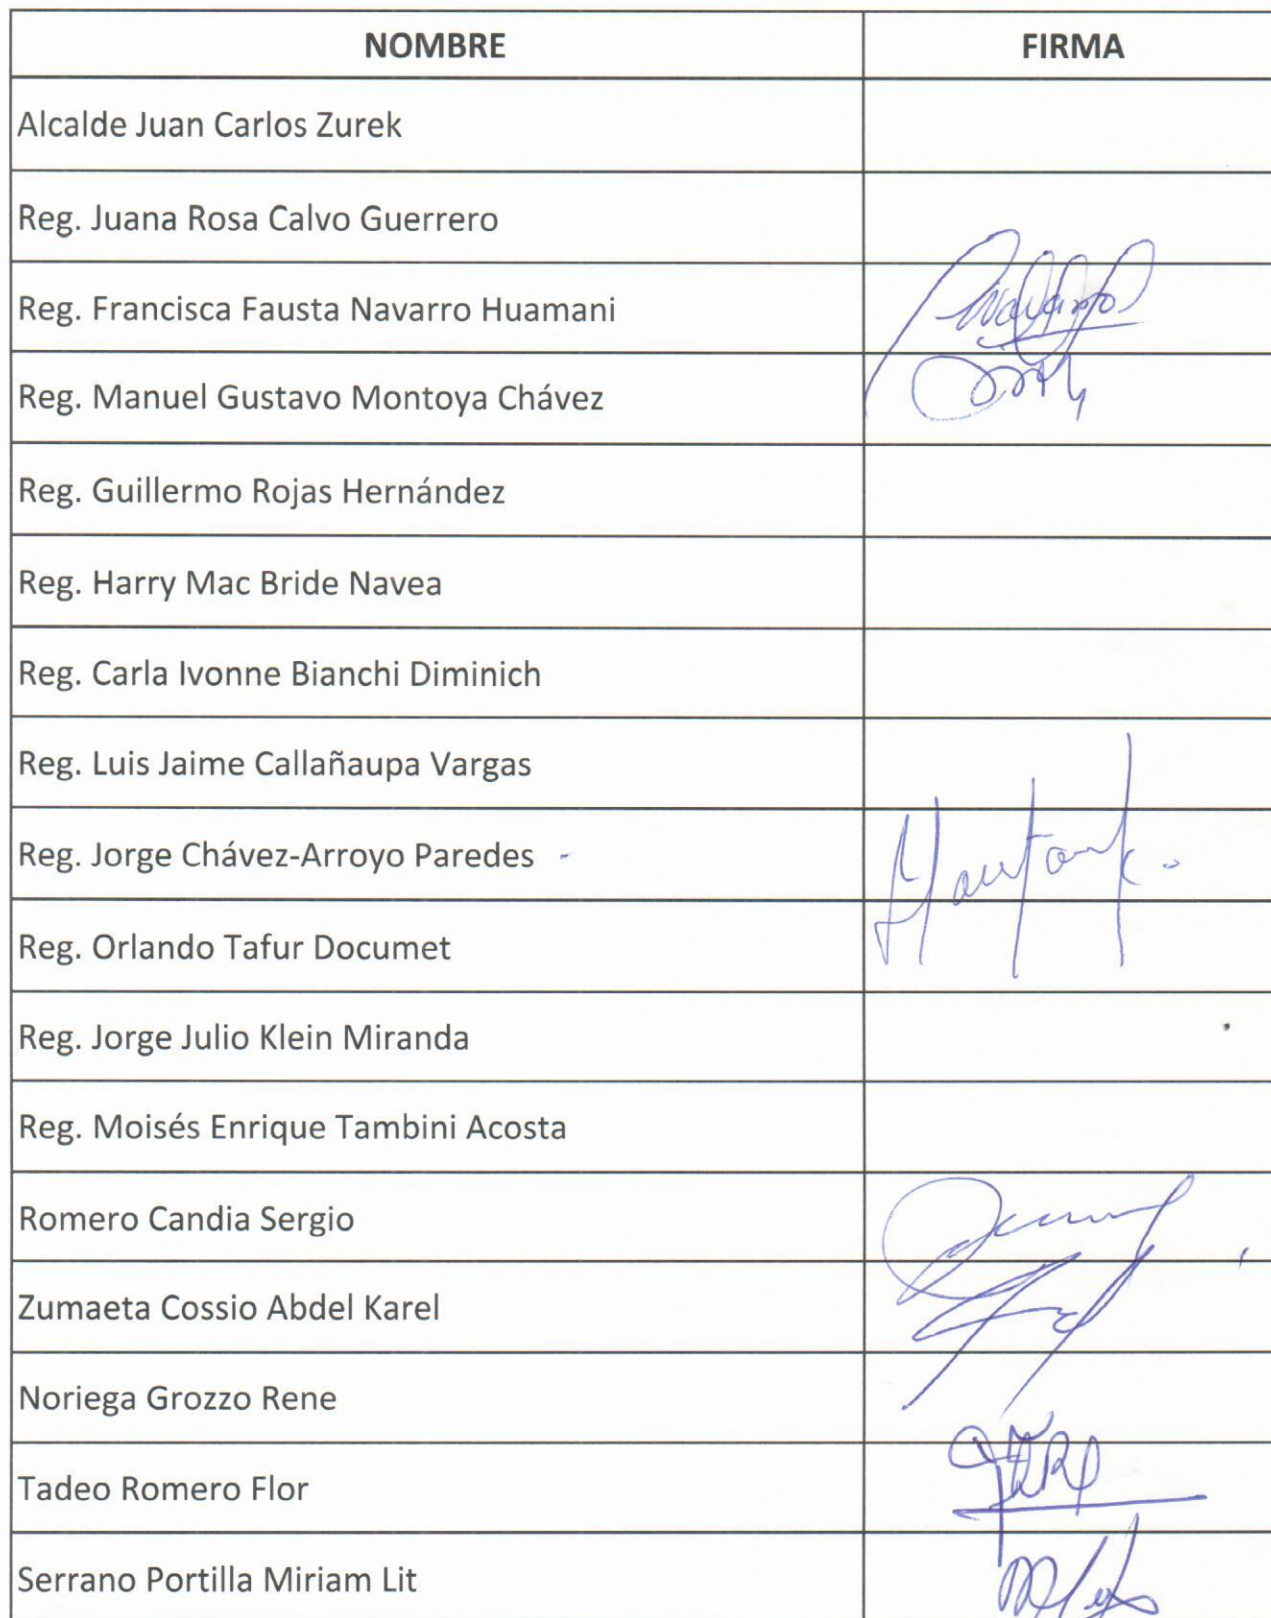 NOMBRE FIRMA
Alcalde Juan Carlos Zurek
Reg. Juana Rosa Calvo Guerrero
Reg. Francisca Fausta Navarro Huamani
Reg. Manuel Gustavo Montoya Chávez
Reg. Guillermo Rojas Hernández
Reg. Harry Mac Bride Navea
Reg. Carla Ivonne Bianchi Diminich
Reg. Luis Jaime Callañaupa Vargas
Reg. Jorge Chávez-Arroyo Paredes -
Reg. Orlando Tafur Documet
Reg. Jorge Julio Klein Miranda
Reg. Moisés Enrique Tambini Acosta
Romero Candia Sergio
Zumaeta Cossio Abdel Karel
Noriega Grozzo Rene
Tadeo Romero Flor
Serrano Portilla Miriam Lit